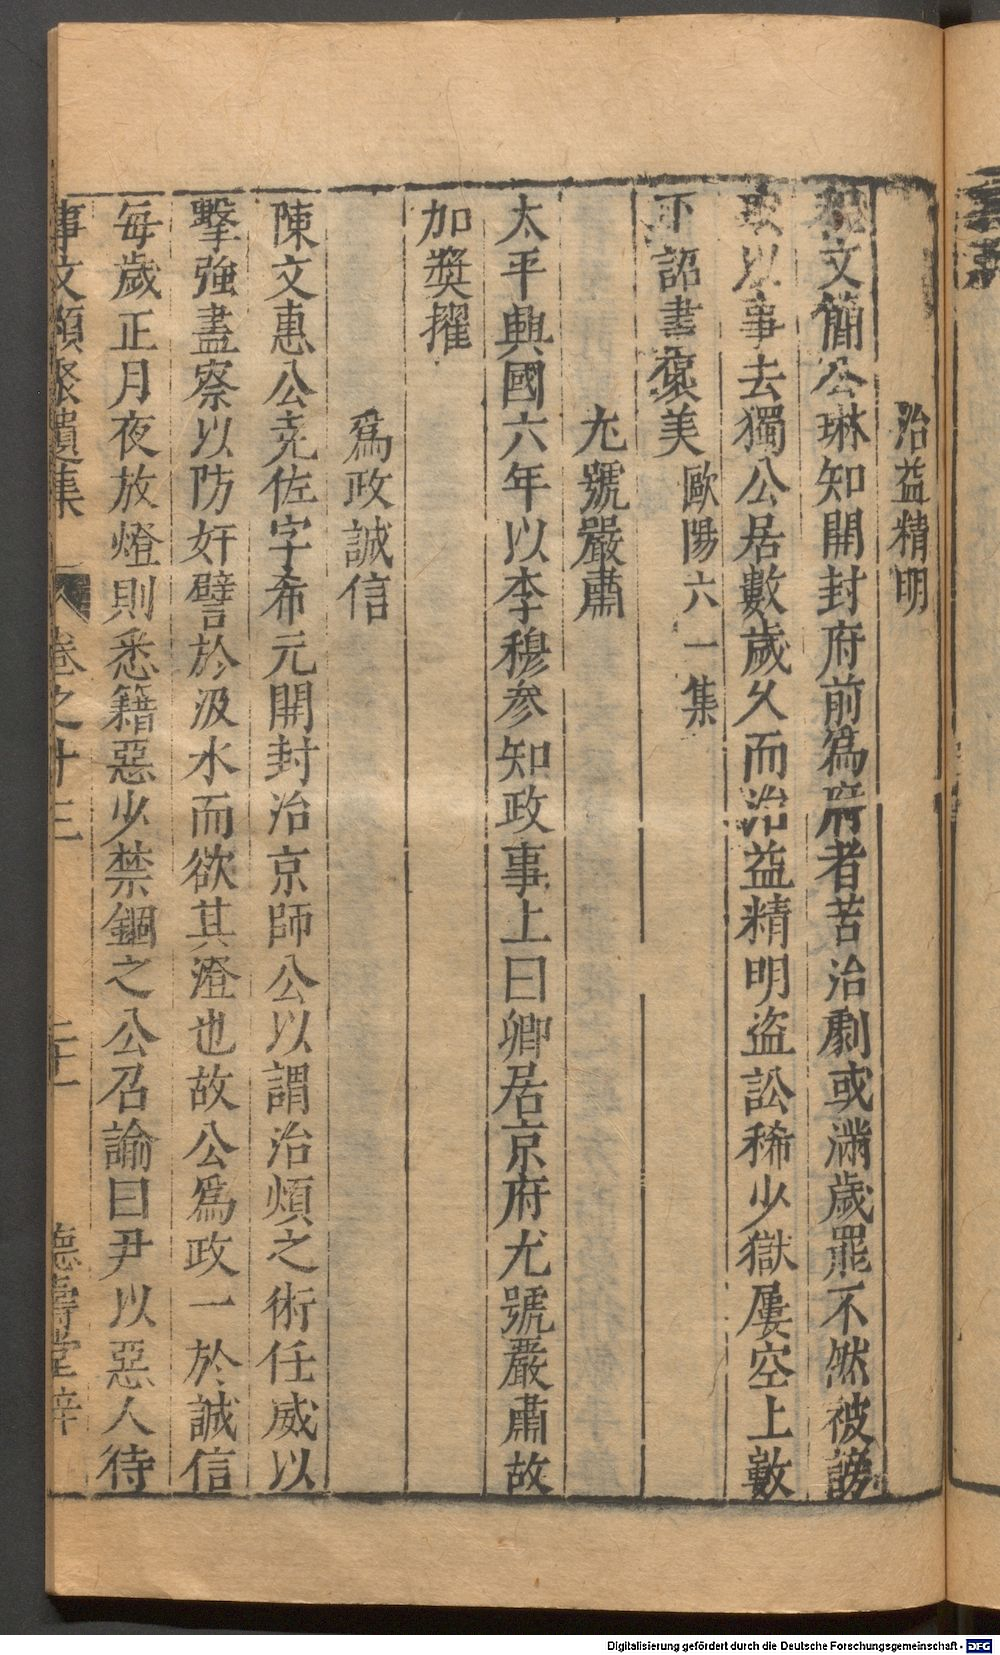 治益精明
程文簡公琳知開封府前爲府者苦治劇或滿歲罷不然被謗
或以事去獨公居數歲久而治益精明盜訟稀少獄屢空上數
下詔書褒美 歐陽六一集
尤號嚴肅
太平興國六年以李穆參知政事上曰卿居京府尤號嚴肅故
加奬擢
爲政誠信
陳文惠公堯佐字希元開封治京師公以謂治煩之術任威以
擊強盡察以防奸譬於汲水而欲其澄也故公爲政一於誠信
每歲正月夜放燈則悉籍惡少禁錮之公召諭曰尹以惡人待
事文類聚遺集 卷之十三 二十一 德壽堂梓
Digitalisierung gefördert durch die Deutsche Forschungsgemeinschaft - DFG